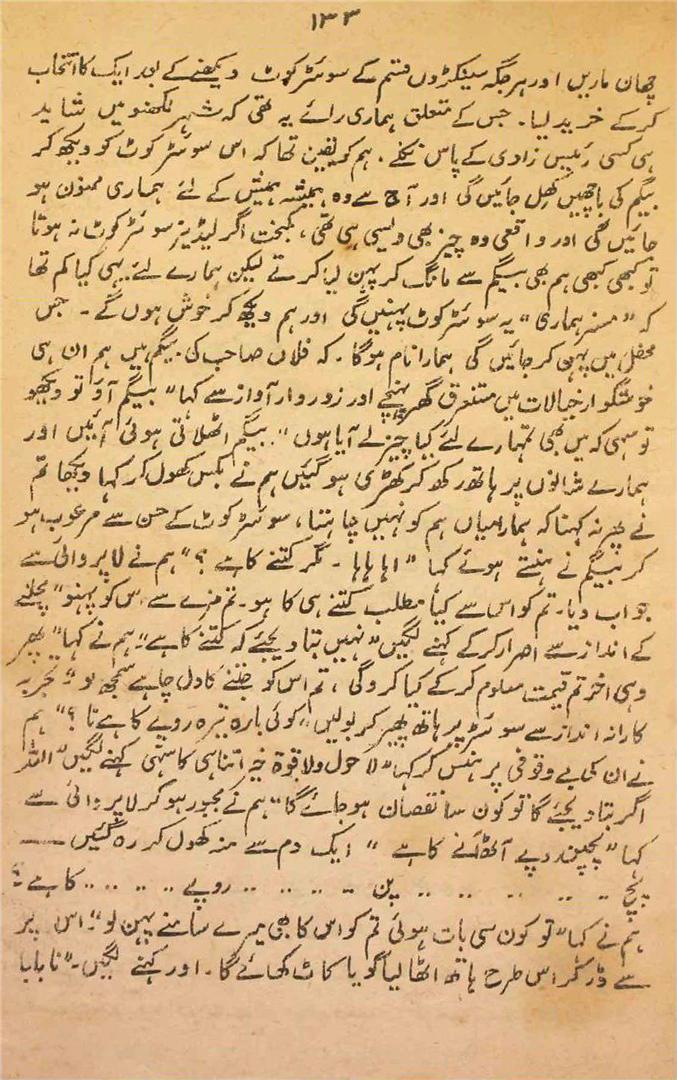 ۱۳۳
چھان ماریں اور ہر جگہ سینکڑوں قسم کے سوئٹر کوٹ دیکھنے کے بعد ایک کا انتخاب
کر کے خرید لیا۔ جس کے متعلق ہماری رائے یہ تھی کہ شہر لکھنؤ میں شاید
ہی کسی رئیس زادی کے پاس نکلے۔ ہم کو یقین تھا کہ اس سوئٹر کوٹ کو دیکھ کر
بیگم کی باچھیں کھل جائیں گی اور آج سے وہ ہمیشہ ہمیش کے لئے ہماری ممنون ہو
جائیں گی اور واقعی وہ چیز بھی ویسی ہی تھی، کمبخت اگر لیڈیز سوئٹر کوٹ نہ ہوتا
تو کبھی کبھی ہم بھی بیگم سے مانگ کر پہن لیا کرتے لیکن ہمارے لئے یہی کیا کم تھا
کہ "مسز ہماری" یہ سوئٹر کوٹ پہنیں گی اور ہم دیکھ کر خوش ہوں گے۔ جس
محفل میں پہن کر جائیں گی ہمارا نام ہوگا۔ کہ فلاں صاحب کی بیگم ہیں ہم ان ہی
خوشگوار خیالات میں مستغرق گھر پہنچے اور زوردار آواز سے کہا "بیگم آؤ تو دیکھو
تو سہی کہ میں بھی تمہارے لئے کیا چیز لے آیا ہوں"۔ بیگم اٹھلاتی ہوئی آئیں اور
ہمارے شانوں پر ہاتھ رکھ کر کھڑی ہو گئیں ہم نے بکس کھول کر کہا دیکھا تم
نے پھر نہ کہنا کہ ہمارا میاں ہم کو نہیں چاہتا، سوئٹر کوٹ کے حسن سے مرعوب ہو
کر بیگم نے ہنستے ہوئے کہا "اہاہاہا۔ مگر کتنے کا ہے؟" ہم نے لاپروائی سے
جواب دیا۔ تم کو اس سے کیا مطلب کتنے ہی کا ہو۔ تم مزے سے اس کو پہنو" مچلنے
کے انداز سے اصرار کر کے کہنے لگیں "نہیں بتا دیجئے کہ کتنے کا ہے" ہم نے کہا "پھر
وہی آخر تم قیمت معلوم کر کے کیا کرو گی، تم اس کو جتنے کا دل چاہے سمجھ لو" تجربہ
کارانہ انداز سے سوئٹر پر ہاتھ پھیر کر بولیں "کوئی بارہ تیرہ روپے کا ہے نا؟" ہم
نے ان کی بے وقوفی پر ہنس کر کہا "لا حول ولا قوۃ خیر اتنا ہی کا سہی کہنے لگیں "اللہ
اگر بتا دیجئے گا تو کون سا نقصان ہو جائے گا" ہم نے مجبور ہو کر لاپروائی سے
کہا "پچپن روپے آٹھ آنے کا ہے" ایک دم سے منہ کھول کر رہ گئیں ——
پچ .. .. .. .. .. .. پن .. .. .. .. .. روپے .. .. .. .. .. کا ہے؟
ہم نے کہا "تو کون سی بات ہوئی تم کو اس کا بھی میرے سامنے پہن لو" اس پر
سے ڈر کر اس طرح ہاتھ اٹھا لیا گویا کاٹ کھائے گا۔ اور کہنے لگیں۔ "نا بابا